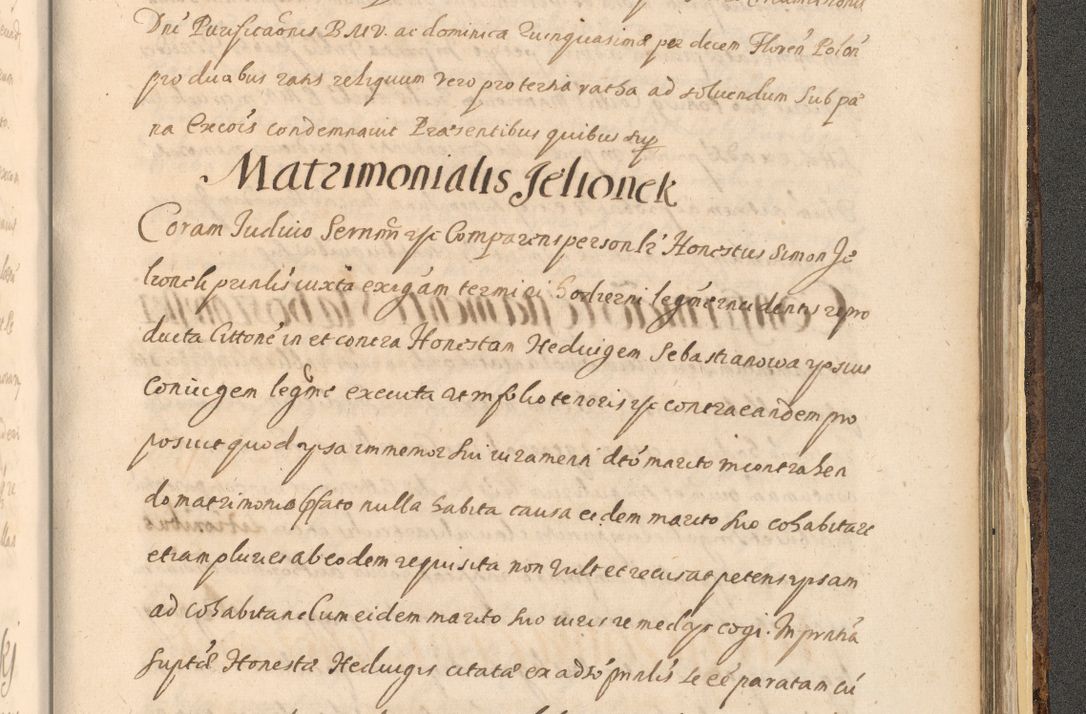 Dnī Purificaōnis B M V. ac dominica Quinquasimæ per decem Floren̄ Polon̄
pro duabus ratis reliquum vero pro tertia ratha ad soluendum sub pæ
na Excois condemnauit Præsentibus quibus sup
Matrimonialis Jelionek
Coram Iudicio Sernm̄ &c Comparens personlr̄ Honestus Simon Je
lionek prinlis iuxta exigām termini hodierni legme incidentis repro
ducta Citone in et contra Honestam Heduigem Sebastianowa ypsius
Coniugem legme executa et in folio tenoris &c contra eandem pro
posuit quod ypsa immemor sui iuramenti dto marito in contrahen
do matrimonio pstato nulla habita causa eidem marito suo cohabitare
etiam pluries ab eodem requisita non vult et recusat petens ypsam
ad cohabitandum eidem marito suo iuris remedys cogi. In prntia
suptæ Honestæ Heduigis citatæ ex adso prnlis se eē paratam cū